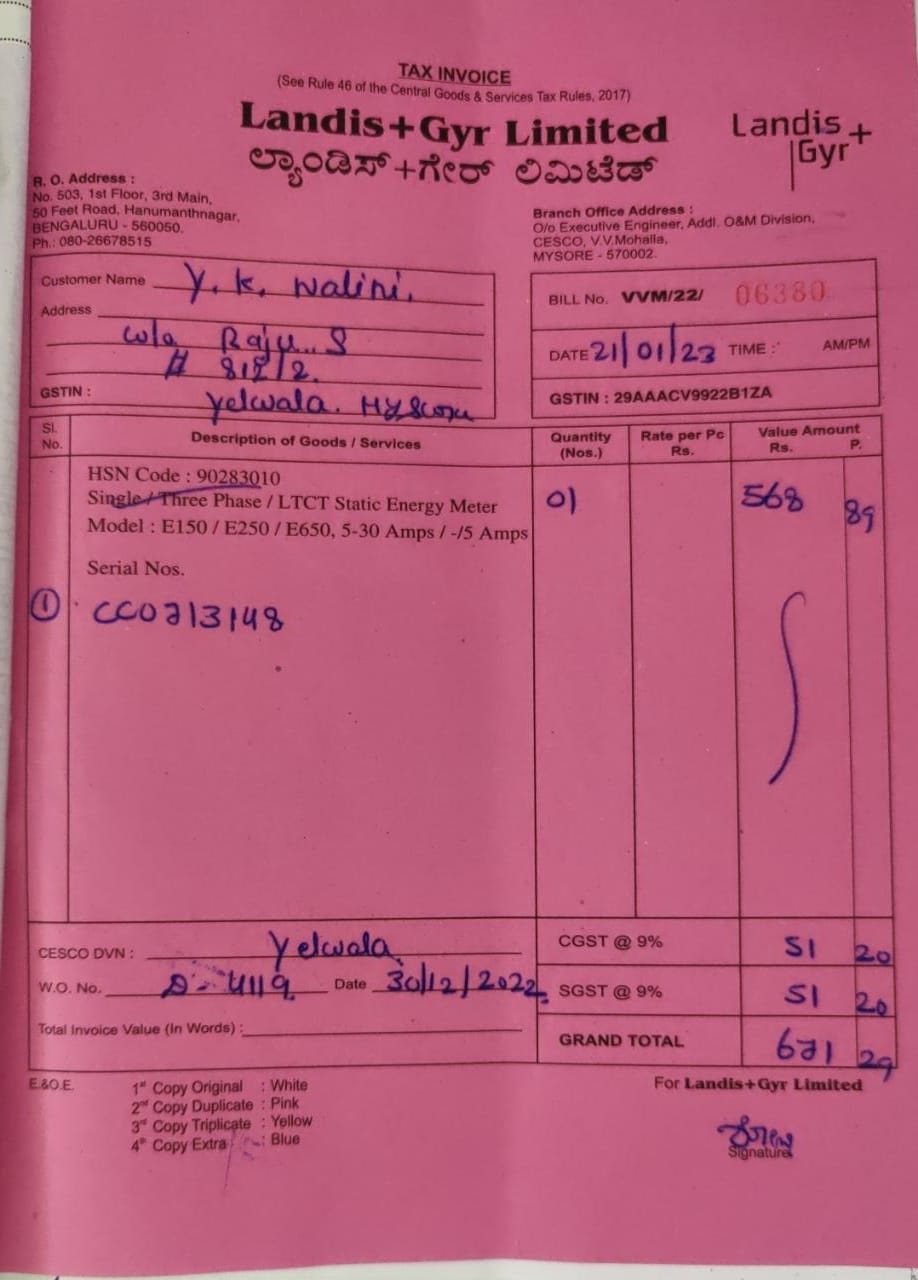 TAX INVOICE
(See Rule 46 of the Central Goods & Services Tax Rules, 2017)
Landis+Gyr Limited
ಲ್ಯಾಂಡಿಸ್+ಗೇರ್ ಲಿಮಿಟೆಡ್
Landis+
Gyr
R. O. Address :
No. 503, 1st Floor, 3rd Main,
50 Feet Road, Hanumanthnagar,
BENGALURU - 560050.
Ph.: 080-26678515
Branch Office Address :
O/o Executive Engineer, Addl. O&M Division,
CESCO, V.V.Mohalla,
MYSORE - 570002.
Customer Name Y. K. Nalini.
Address
w/o Raju. S
# 812/2.
GSTIN :
Yelwala. Mysuru
BILL No. VVM/22/ 06380
DATE 21/01/23 TIME : AM/PM
GSTIN : 29AAACV9922B1ZA
Sl. No. Description of Goods / Services Quantity (Nos.) Rate per Pc Rs. Value Amount Rs. P.
HSN Code : 90283010
Single / Three Phase / LTCT Static Energy Meter 01 568 89
Model : E150 / E250 / E650, 5-30 Amps / -/5 Amps
Serial Nos.
① CC0713148
CESCO DVN : Yelwala
W.O. No. D-4119 Date 30/12/2022
Total Invoice Value (In Words) :
CGST @ 9% 51 20
SGST @ 9% 51 20
GRAND TOTAL 671 29
E.&O.E.
1st Copy Original : White
2nd Copy Duplicate : Pink
3rd Copy Triplicate : Yellow
4th Copy Extra : Blue
For Landis+Gyr Limited
Signature